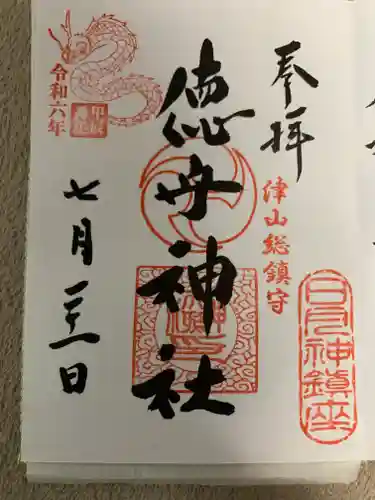 奉拝
津山総鎮守
日月神鎮座
徳守神社
令和六年
七月二十一日